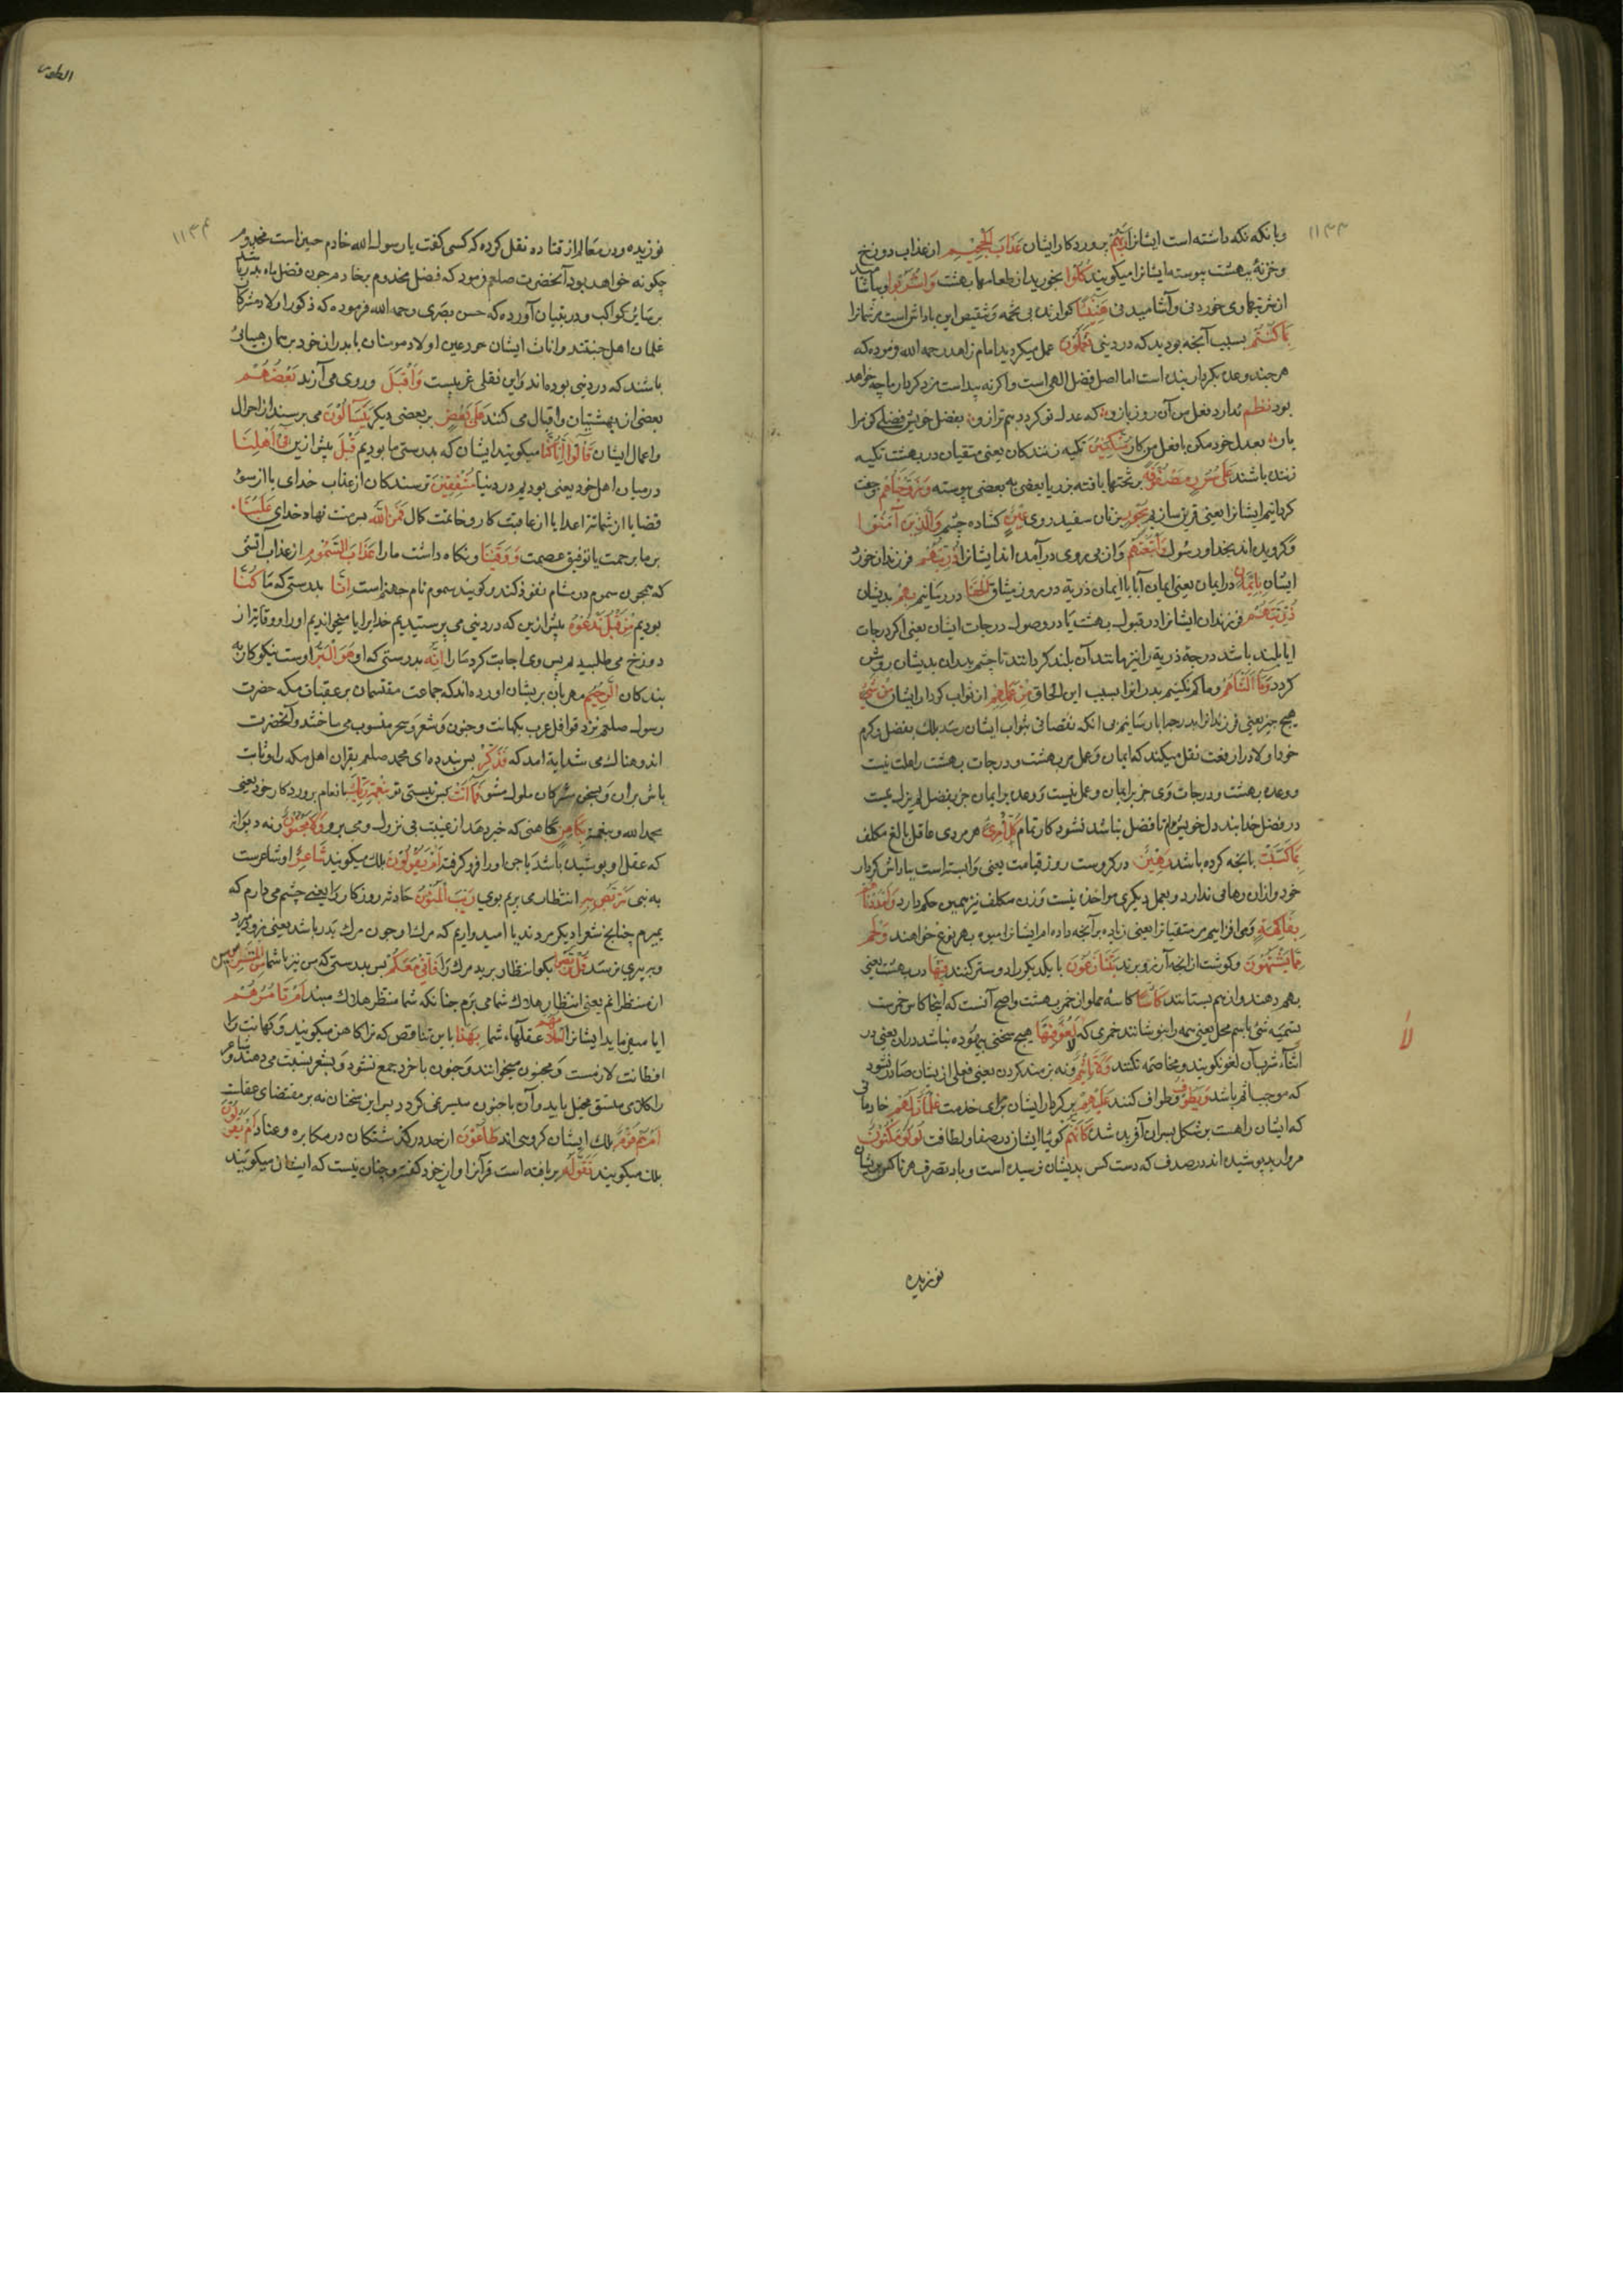 ۱۱۳۳
وبانکه نکه داشته است ایشانرا رَبُّهُمْ پروردکار ایشان عَذَابَ الْجَحِیْمِ از عذاب دوزخ
وخزنهٔ بهشت پیوسته ایشانرا میکویند کُلُوْا بخورید از طعامها بهشت وَاشْرَبُوا وبیاشامید
از شربتهاوی خوردنی وآشامیدنی هَنِیْئًا کوارنده بی تخمه وتنقیص این پاداش است مر شمارا
بِمَا کُنْتُمْ بسبب آنچه بودید که در دنیی تَعْمَلُوْنَ عمل میکردید امام زاهد رحمه الله فرموده که
هرچند وعده بکردار بنده است اما اصل فضل الهی است واکرنه پیداست مزد کردار ما چه خواهد
بود نظم ندارد فعل من آن روز بازو که عدل تو کردد هم ترازو بفضل خویش فضلی کن مرا
یار بعدل خود مکن بافعل من کار مُتَّکِئِیْنَ تکیه زنندکان یعنی متقیان در بهشت تکیه
زنند باشند عَلٰی سُرُرٍ مَصْفُوْفَةٍ بر تختها بافته بزر یا بعضی به بعضی پیوسته وَزَوَّجْنَاهُمْ وجفت
کردانیم ایشانرا یعنی قرین سازیم بِحُوْرٍ بزنان سفید روی عِیْنٍ کشاده چشم وَالَّذِیْنَ آمَنُوْا
وکرویده اند بخدا ورسول وَاتَّبَعَتْهُمْ وازپی روی درآمده اند ایشانرا ذُرِّیَّتُهُمْ فرزندان خود
ایشان بِاِیْمَانٍ در ایمان یعنی ایمان آبا باایمان ذریة در روز میثاق اَلْحَقْنَا دررسانیم بِهِمْ بدیشان
ذُرِّیَّتَهُمْ فرزندان ایشانرا در قبول بهشت یا در وصول درجات ایشان یعنی اکر درجات
ابا بلند باشد درجهٔ ذریة را نیز مانند آن بلند کردانند تا چشم پدران بدیشان روشن
کردد وَمَا اَلَتْنَاهُمْ وما کم نکنیم پدرانرا بسبب این الحاق مِنْ عَمَلِهِمْ از ثواب کردار ایشان مِنْ شَیْءٍ
هیچ چیز یعنی فرزندانرا بدرجه ابا رسانیم بی انکه نقصانی بثواب ایشان رسد بلک بفضل وکرم
خود اولاد را رفعت نقل میکند که ایمان وعمل مر بهشت ودرجات بهشت را علت نیست
ووعده بهشت ودرجات وی جز بر ایمان وعمل نیست ووعده بر ایمان جز بفضل لم یزل نیست
در فضل خدا بند دل خویش مدام تا فضل نباشد نشود کار تمام کُلُّ امْرِیٍٔ هر مردی عاقل بالغ مکلف
بِمَا کَسَبَتْ بانچه کرده باشد رَهِیْنٌ در کروست روز قیامت یعنی وابسته است بپاداش کردار
خود وازان رهایی ندارد وبعمل دیکری مواخذه نیست وزن مکلف نیز همین حکم دارد وَاَمْدَدْنَاهُمْ
بِفَاکِهَةٍ ومی افزاییم مر متقیانرا یعنی زیاده بر آنچه داده ام ایشانرا میوه بهر نوع خواهند وَلَحْمٍ
مِمَّا یَشْتَهُوْنَ وکوشت از انچه آرزو برند یَتَنَازَعُوْنَ با یکدیکر را دوستر کنند فِیْهَا در بهشت یعنی
بهم دهند وازهم بستانند کَأْسًا کاسهٔ مملو از خمر بهشت واصح آنست که اینجا کاس خمرست
بتسمیه شئ باسم محل یعنی همه را بنوشانند خمری که لَا لَغْوٌ فِیْهَا هیچ سخنی بیهوده نباشد دران یعنی در
اثناء شرب آن لغو نکویند ومخاصمه نکنند وَلَا تَأْثِیْمٌ ونه بزه مند کردن یعنی فعلی از یشان صادر نشود
که موجب اثم باشد وَیَطُوْفُ وطواف کنند عَلَیْهِمْ بر کرداکرد ایشان برای خدمت غِلْمَانٌ لَهُمْ خادمانی
که ایشان راهست بر شکل پسران آفریده شده کَاَنَّهُمْ کویا ایشان در صفا ولطافت لُؤْلُؤٌ مَکْنُوْنٌ
مروارید پوشیده اند در صدف که دست کس بدیشان نرسیده است وباد تصرف هر ناکس بر یشان
نوزیده
لا
الطور
۱۱۳۴
نوزیده ودر معالم از قتاده نقل کرده که کسی کفت یا رسول الله خادم چنین است مخدوم
چکونه خواهد بود آنحضرت صلعم فرمود که فضل مخدوم بر خادم چون فضل ماه بدر باشد
بر سایر کواکب ودر تبیان آورده که حسن بصری رحمه الله فرموده که ذکور اولاد مشرکان
غلمان اهل جنتند واناث ایشان حور عین اولاد مومنان با پدران خود بر همان هیأتی
باشند که در دنیی بوده اند واین نقلی غریبست وَاَقْبَلَ وروی می آرند بَعْضُهُمْ
بعضی از بهشتیان واقبال می کنند عَلٰی بَعْضٍ بر بعضی دیکر یَتَسَآءَلُوْنَ می پرسند از احوال
واعمال ایشان قَالُوْا اِنَّا کُنَّا میکویند ایشان که بدرستی ما بودیم قَبْلُ پیش از ین فِیْ اَهْلِنَا
درمیان اهل خود یعنی بودیم در دنیا مُشْفِقِیْنَ ترسندکان از عذاب خدای یا از سوء
قضا یا از شماتة اعدا یا از عاقبت کار وخاتمت کال فَمَنَّ اللّٰهُ پس منت نهاد خدای عَلَیْنَا
بر ما برحمت یا توفیق عصمت وَوَقٰینَا ونکاه داشت مارا عَذَابَ السَّمُوْمِ از عذاب آتشی
که همچون سموم در مشام نفوذ کند وکویند سموم نام جهنم است اِنَّا بدرستی که ما کُنَّا
بودیم مِنْ قَبْلُ نَدْعُوْهُ پیش از ین که در دنیی می پرستیدیم خدایرا یا میخواندیم اورا ووقایة از
دوزخ می طلبیدیم پس وی اجابت کرد مارا اِنَّهٗ بدرستی که او هُوَ الْبَرُّ اوست نیکوکار به
بندکان الرَّحِیْمُ مهربان بریشان آورده اند که جماعت مقتسمان بر عقبات مکه حضرت
رسول صلعم نزد قوافل عرب بکهانت وجنون وشعر وسحر منسوب می ساختند وآنحضرت
اندوهناک می شد ایة امد که فَذَکِّرْ پس پند ده ای محمد صلعم بقران اهل مکه را وثابت
باش بران وبسخن مشرکان ملول مشو فَمَا اَنْتَ پس نیستی تو بِنِعْمَةِ رَبِّکَ بانعام پروردکار خود یعنی
بحمد الله وبنعمته بِکَاهِنٍ کاهنی که خبر دهد از غیبت بی نزول وحی برو وَلَا مَجْنُوْنٍ ونه دیوانه
که عقل او پوشیده باشد یا جن اورا فرو کرفته اَمْ یَقُوْلُوْنَ بلک میکویند شَاعِرٌ او شاعرست
به نبی نَتَرَبَّصُ بِهٖ انتظار می بریم بوی رَیْبَ الْمَنُوْنِ حادثه روزکار را یعنی چشم می دارم که
بمیرم چنانچ شعرا دیکر مردند یا امیدواریم که مرک او چون مرک پدر باشد یعنی زود
وبه پیری نرسد قُلْ تَرَبَّصُوْا بکو انتظار برید مرک را فَاِنِّیْ مَعَکُمْ پس بدرستی که من نیز با شما مِنَ الْمُتَرَبِّصِیْنَ
از منتظرانم یعنی انتظار هلاک شما می برم چنانکه شما منتظر هلاک منید اَمْ تَأْمُرُهُمْ
ایا میفرماید ایشانرا اَحْلَامُهُمْ عقلهاء شما بِهٰذَا باین تناقص که ترا کاهن میکویند وکهانت را
وفطانت لازمست ومجنون میخوانند وجنون با خرد جمع نشود وبشعر نسبت می دهند وشعر
را کلامی متسق مخیل باید وآن با جنون میسر نمی کردد پس این سخنان نه بر مقتضای عقلست
اَمْ هُمْ قَوْمٌ بلک ایشان کروهی اند طَاغُوْنَ از حد درکذشتکان در مکابره وعناد اَمْ یَقُوْلُوْنَ
بلک میکویند تَقَوَّلَهٗ بر بافته است قرآنرا واز خود کفته وچنان نیست که ایشان میکویند